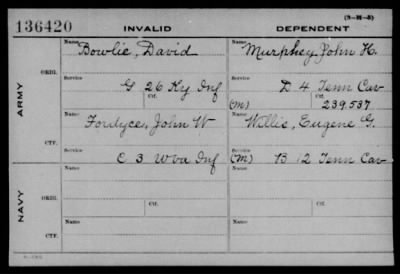 (3-H-3)
136420 INVALID DEPENDENT
Name Bowlie, David Name Murphey, John H.
ORIG.
Service G 26 Ky Inf Service D 4 Tenn Cav
Ctf. Ctf.
(M) 239,537
ARMY
Name Fordyce, John W. Name Willis, Eugene G.
CTF.
Service C 3 W va Inf Service (M) B 12 Tenn Cav
Name Name
ORIG.
Ctf. Ctf.
NAVY
Name Name
CTF.